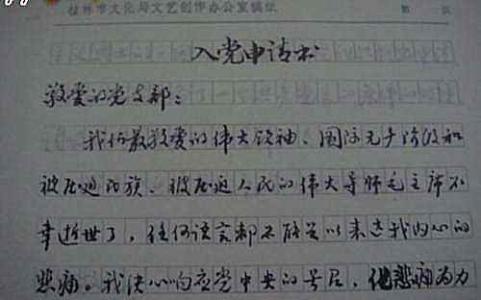 桂林市文化局文艺创作办公室稿纸 第 页
入党申请书
敬爱的党支部：
我们最敬爱的伟大领袖、国际无产阶级和
被压迫民族、被压迫人民的伟大导师毛主席不
幸逝世了，任何语言都不能以来表我内心的
悲痛。我决心响应党中央的号召，化悲痛为力